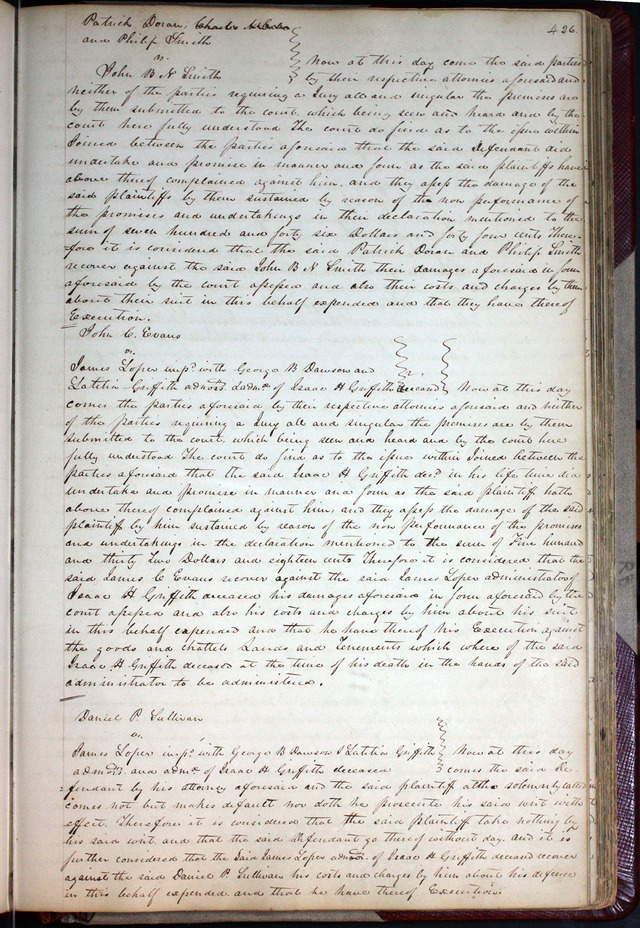 426.
Patrick Doran,
and Philip Smith
vs.
John B N Smith
Now at this day come the said parties
by their respective attornies aforesaid and
neither of the parties requiring a Jury all and singular the premises are
by them submitted to the court, which being seen and heard and by the
court here fully understood The court do find as to the issue within
Joined between the parties aforesaid that the said Defendant did
undertake and promise in manner and form as the said plaintiffs have
above thereof complained against him. and they assess the damage of the
said plaintiffs by them sustained by reason of the non performance of
the promises and undertakings in their declaration mentioned to the
sum of seven hundred and forty six Dollars and forty four cents There-
fore it is considered that the said Patrick Doran and Philip Smith
recover against the said John B N Smith their damages aforesaid in form
aforesaid by the court assessed and also their costs and charges by them
about their suit in this behalf expended and that they have thereof
Execution.
John C. Evans
vs.
James Loper imp. with George B Dawson and
Latitia Griffith admors. & admx. of Isaac H Griffith deceased
Now at this day
comes the parties aforesaid by their respective attornies aforesaid and neither
of the parties requiring a Jury all and singular the premises are by them
submitted to the court, which being seen and heard and by the court here
fully understood The court do find as to the issue within Joined between the
parties aforesaid that the said Isaac H Griffith decd. in his life time did
undertake and promise in manner and form as the said plaintiff hath
above thereof complained against him, and they assess the damage of the said
plaintiff by him sustained by reason of the non performance of the promises
and undertakings in the declaration mentioned to the sum of Five hundred
and thirty Two Dollars and eighteen cents Therefore it is considered that the
said James C Evans recover against the said James Loper administrator of
Isaac H Griffith deceased his damages aforesaid in form aforesaid by the
court assessed and also his costs and charges by him about his suit
in this behalf expended and that he have thereof his Execution against
the goods and chattels Lands and Tenements which where of the said
Isaac H Griffith deceased at the time of his death in the hands of the said
administrator to be administered.
Daniel P. Sullivan
vs.
James Loper imp. with George B Dawson & Latitia Griffith
admors. and admx. of Isaac H Griffith deceased
Now at this day
comes the said De-
fendant by his attorney aforesaid and the said plaintiff altho solemnly called
comes not but makes default nor doth he prosecute his said writ with
effect. Therefore it is considered that the said plaintiff take nothing by
his said writ. and that the said Defendant go thereof without day. and it is
further considered that the said James Loper admor. of Isaac H Griffith deceased recover
against the said Daniel P. Sullivan his costs and charges by him about his defence
in this behalf expended and that he have thereof Execution.